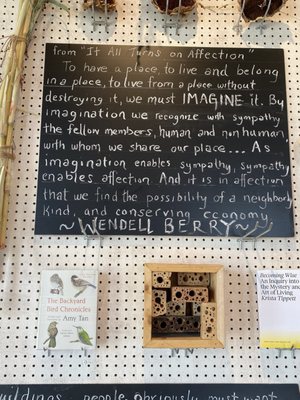 from "It All Turns on Affection"
To have a place, to live and belong
in a place, to live from a place without
destroying it, we must IMAGINE it. By
imagination we recognize with sympathy
the fellow members, human and non human
with whom we share our place... As
imagination enables sympathy, sympathy
enables affection. And it is in affection
that we find the possibility of a neighborly
kind, and conserving economy
~WENDELL BERRY~
The Backyard
Bird Chronicles
Amy Tan
Becoming Wise
An Inquiry into
the Mystery and
Art of Living
Krista Tippett
buildings people obviously must want